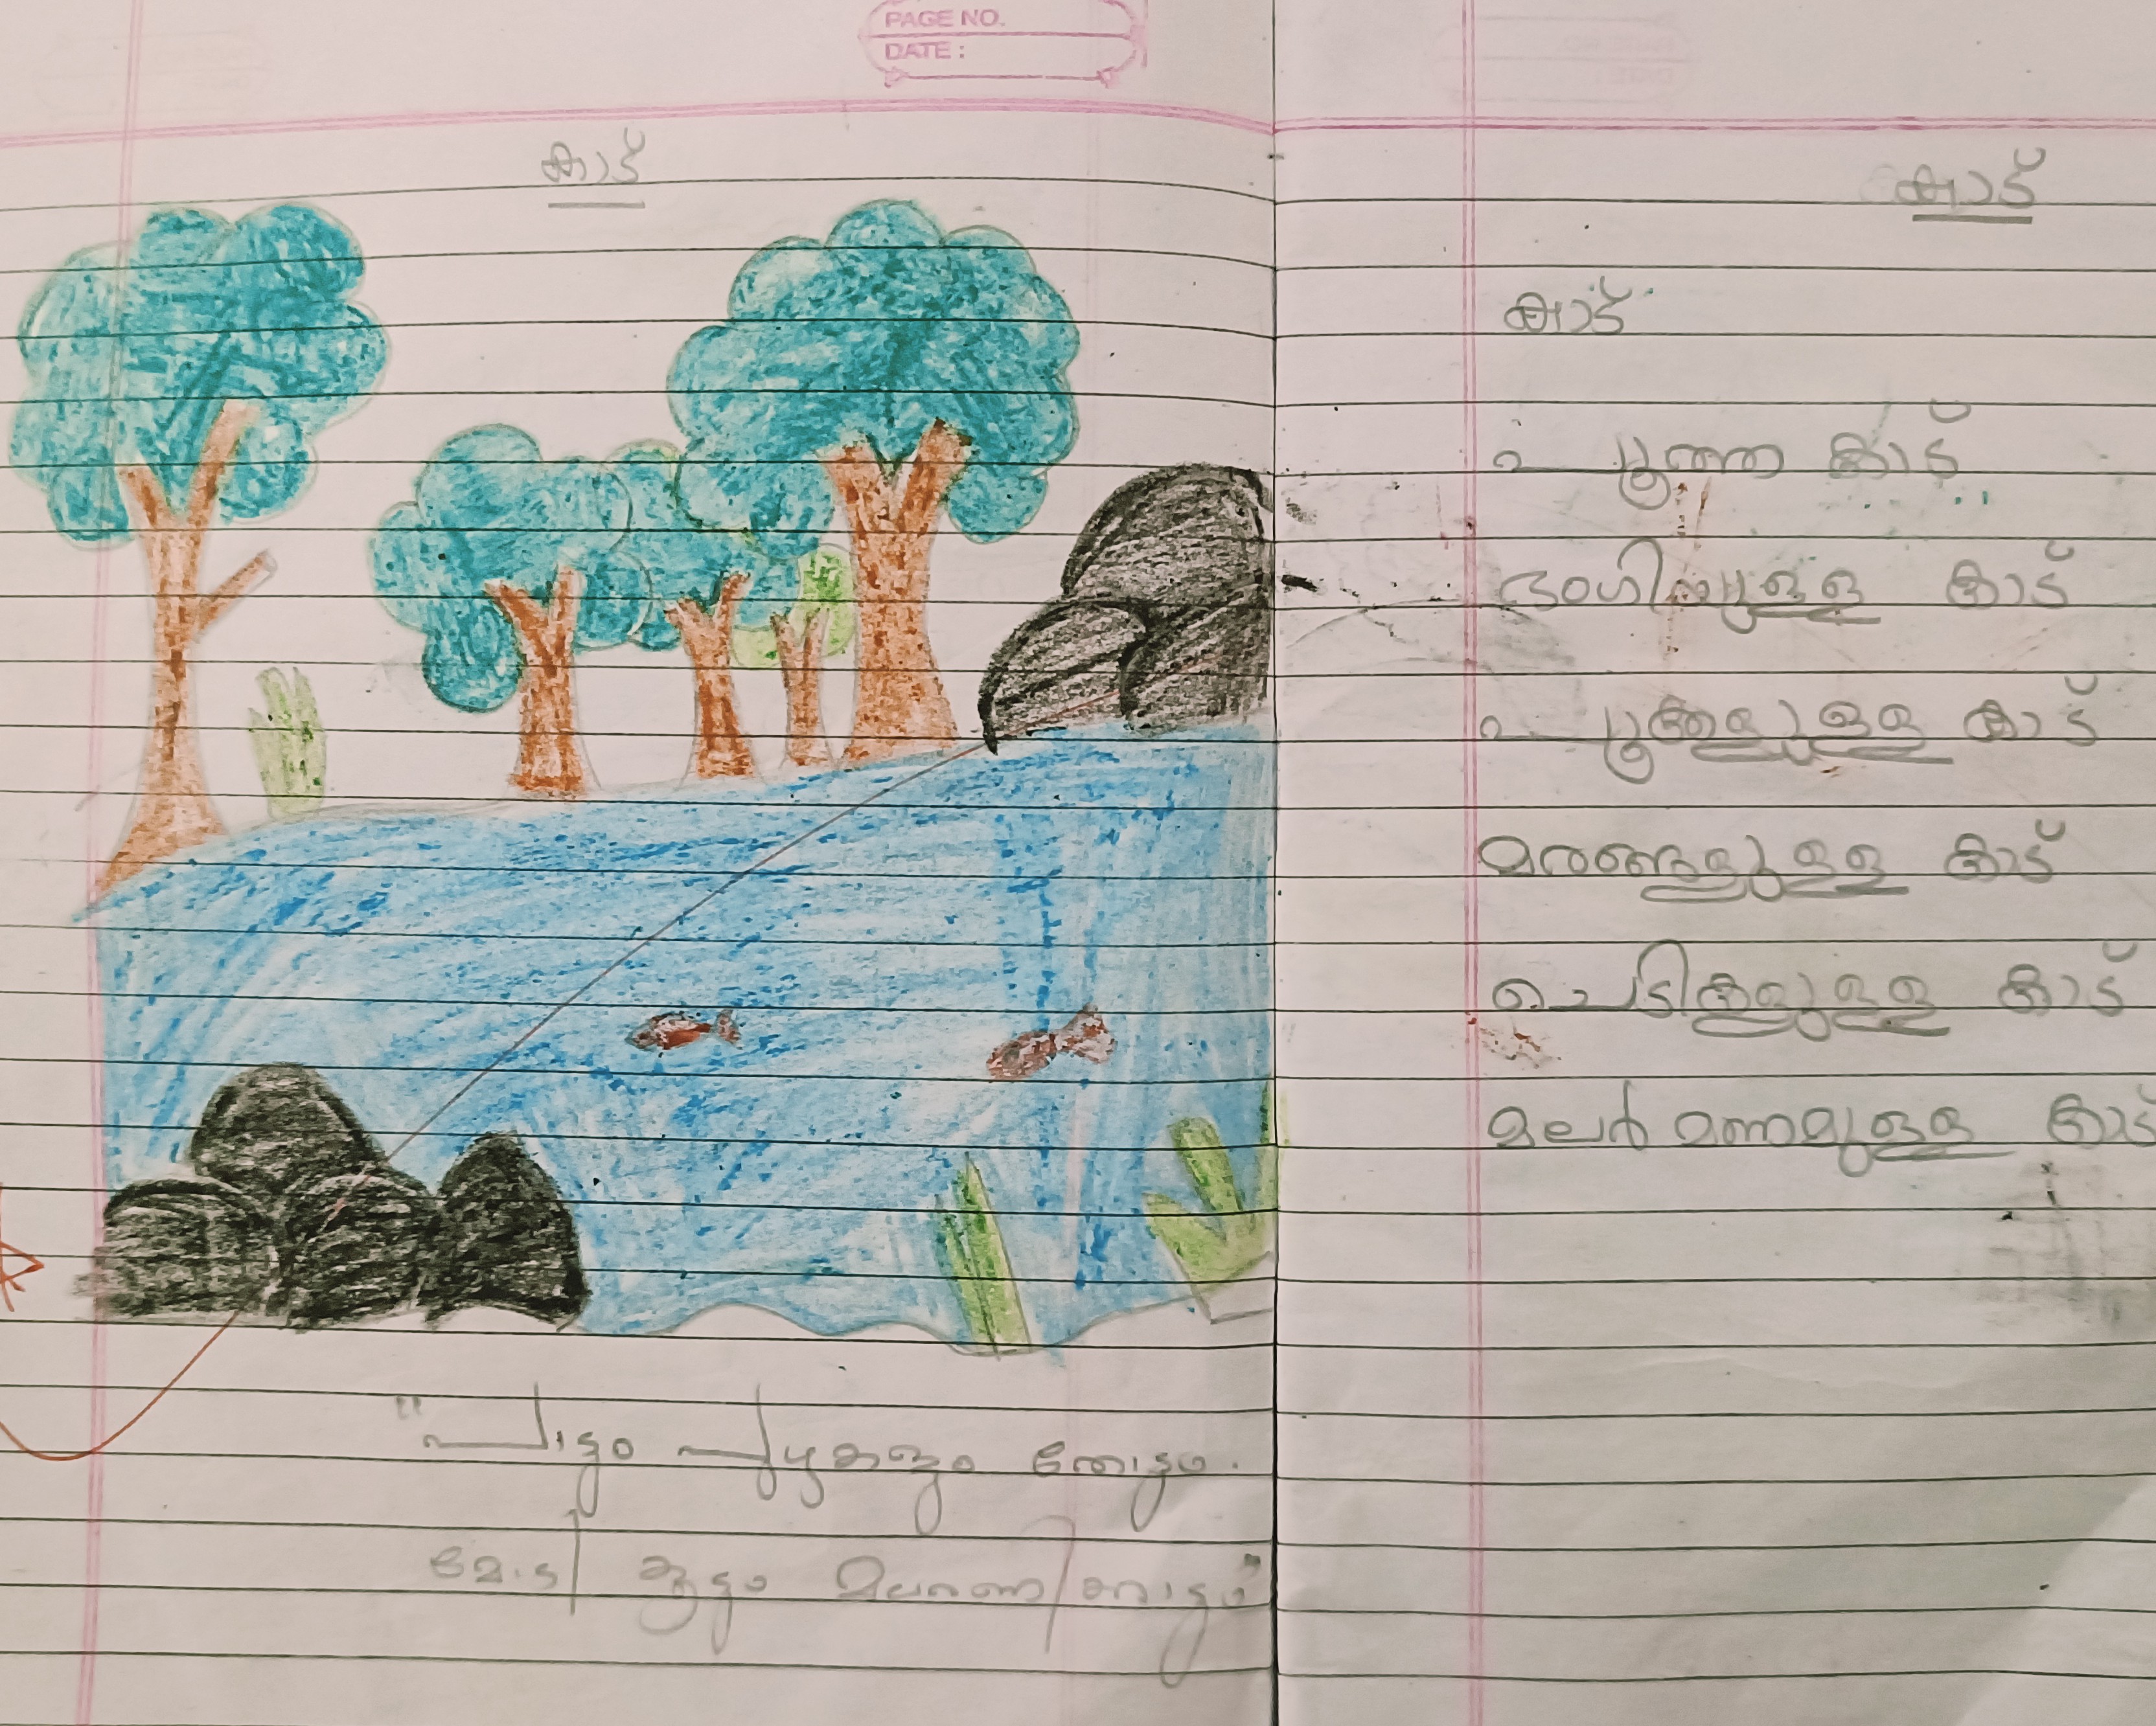 PAGE NO.
DATE :
കാട്
"പാട്ടും പുഴകളും തോടും
മോടി കൂട്ടും
കാട്
കാട്
പൂത്ത കാട്
ഭംഗിയുള്ള കാട്
പൂക്കളുള്ള കാട്
മരങ്ങളുള്ള കാട്
ചെടികളുള്ള കാട്
മലർ മണമുള്ള കാട്